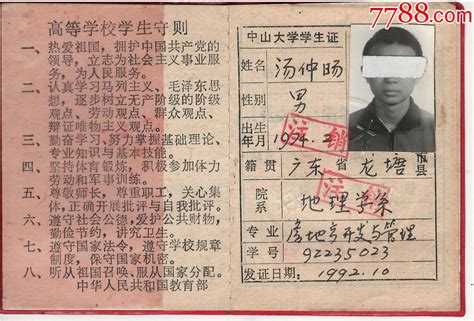 高等学校学生守则
一、热爱祖国，拥护中国共产党的
领导，立志为社会主义事业服
务，为人民服务。
二、认真学习马列主义、毛泽东思
想，逐步树立无产阶级的阶级
观点、劳动观点、群众观点、
辩证唯物主义观点。
三、勤奋学习，努力掌握基础理论、
专业知识与基本技能。
四、坚持体育锻炼，积极参加体力
劳动和军事训练。
五、尊敬师长，尊重职工，关心集
体，正确开展批评与自我批评。
六、遵守社会公德，爱护公共财物，
勤俭节约，讲究卫生。
七、遵守国家法令，遵守学校规章
制度，保守国家机密。
八、听从祖国召唤、服从国家分配。
中华人民共和国教育部
7788.com
中山大学学生证
姓名 汤仲旸
性别 男
出生年月 1974.
注销
籍贯 广东省 龙塘 市县
注销
院系 地理学系
专业 房地产开发与管理
学号 92235023
发证日期：1992.10